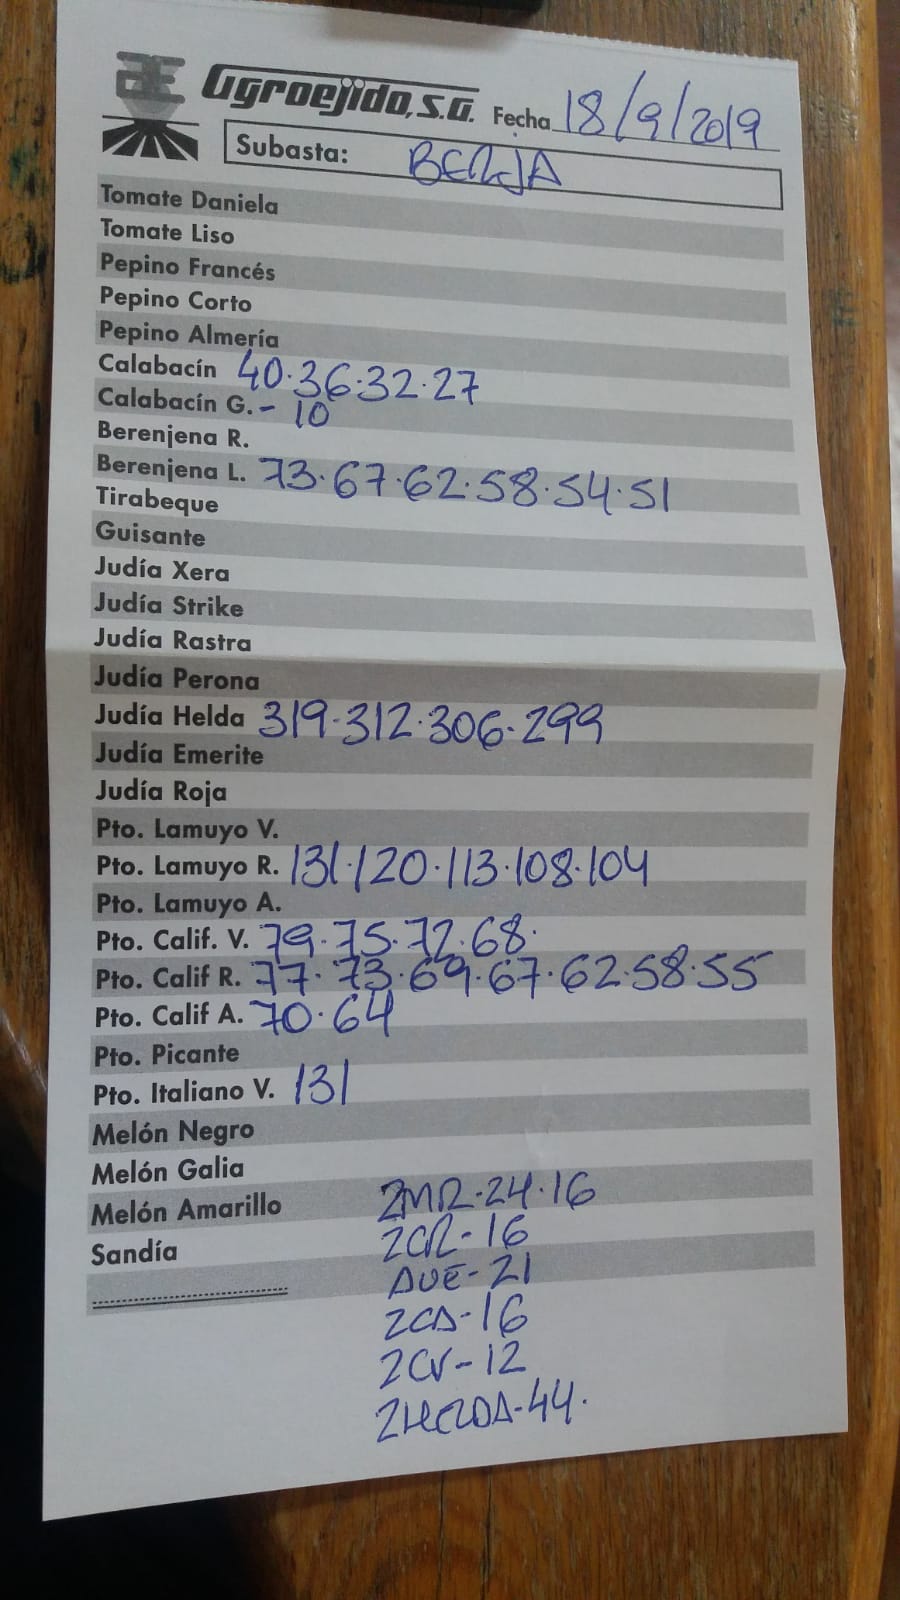 agroejido, s.a. Fecha 18/9/2019
Subasta: BERJA
Tomate Daniela
Tomate Liso
Pepino Francés
Pepino Corto
Pepino Almería
Calabacín 40·36·32·27
Calabacín G. - 10
Berenjena R.
Berenjena L. 73·67·62·58·54·51
Tirabeque
Guisante
Judía Xera
Judía Strike
Judía Rastra
Judía Perona
Judía Helda 319·312·306·299
Judía Emerite
Judía Roja
Pto. Lamuyo V.
Pto. Lamuyo R. 131·120·113·108·104
Pto. Lamuyo A.
Pto. Calif. V. 79·75·72·68·
Pto. Calif R. 77·73·69·67·62·58·55
Pto. Calif A. 70·64
Pto. Picante
Pto. Italiano V. 131
Melón Negro
Melón Galia
Melón Amarillo 2MR·24·16
Sandía 2CR-16
AVE-21
2CA-16
2CV-12
2HELDA-44·